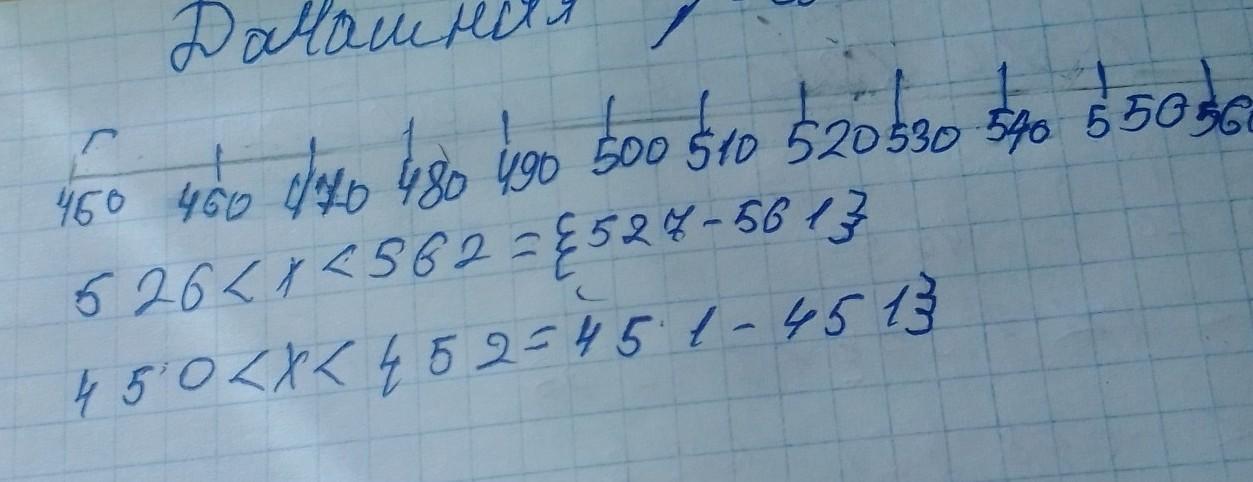 Домашняя
450 460 470 480 490 500 510 520 530 540 550 560
526 < x < 562 = {527 - 561}
450 < x < 452 = 451 - 451}